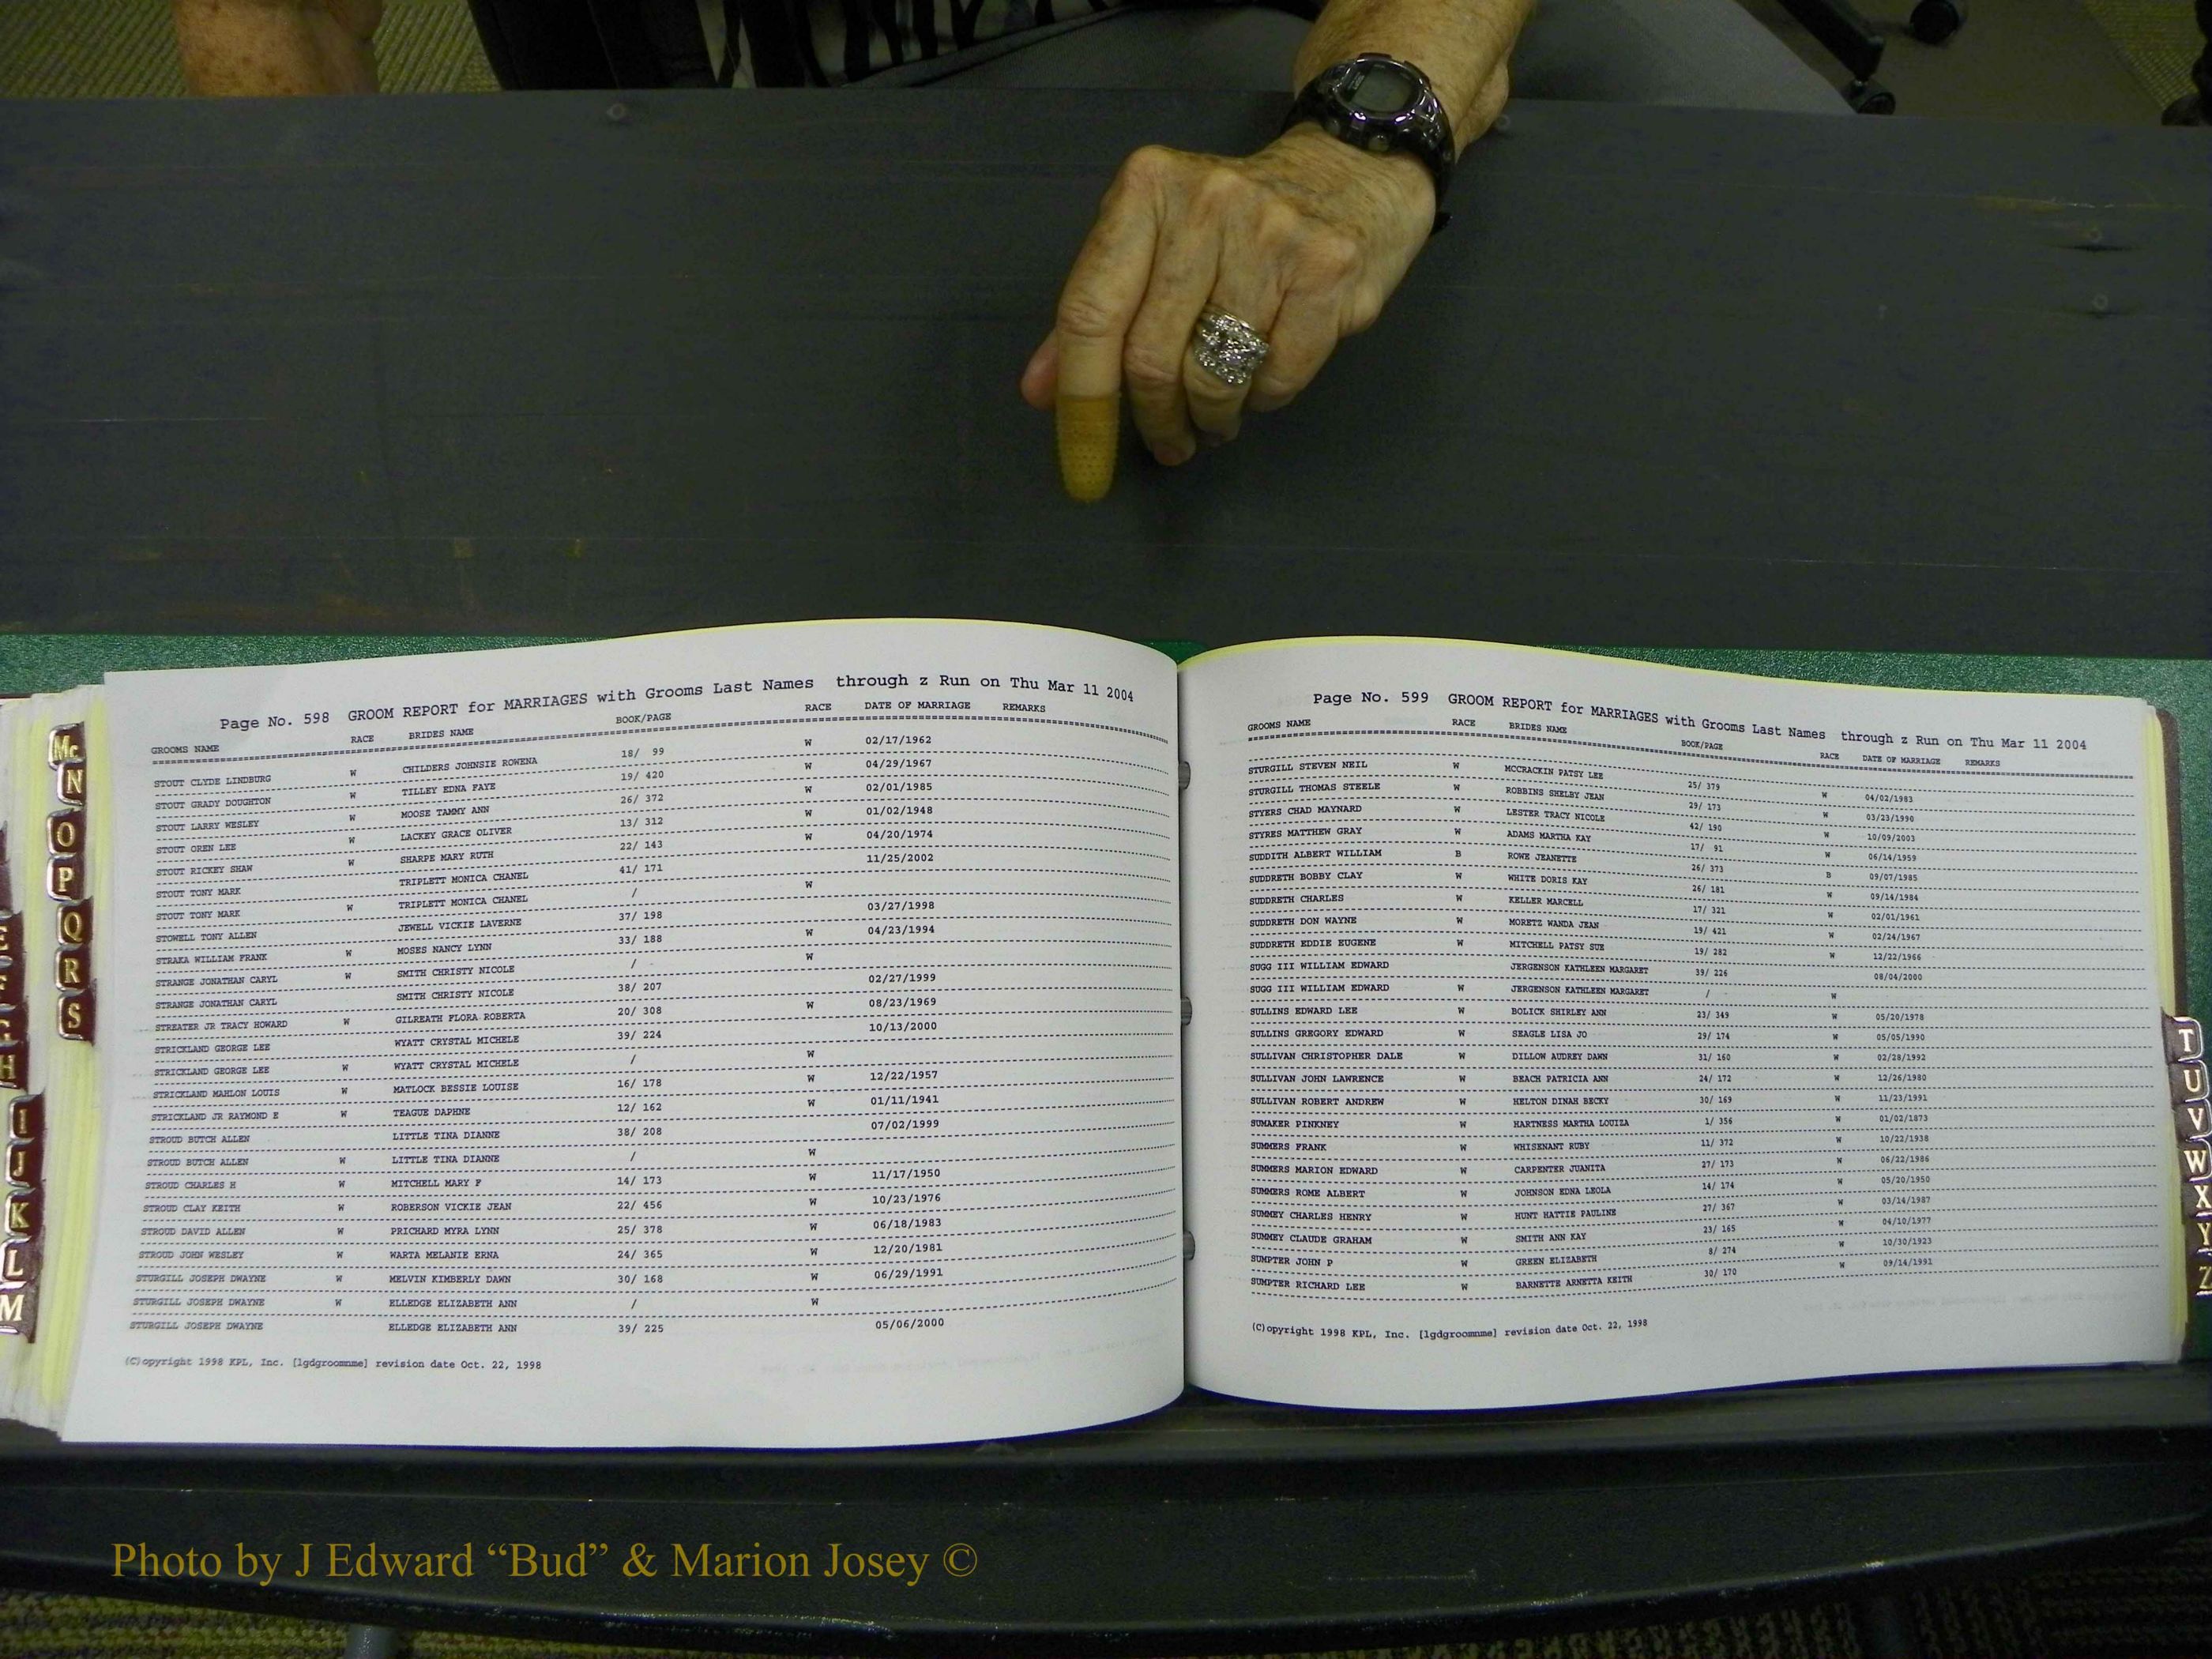 Page No. 598 GROOM REPORT for MARRIAGES with Grooms Last Names through z Run on Thu Mar 11 2004
GROOMS NAME RACE BRIDES NAME BOOK/PAGE RACE DATE OF MARRIAGE REMARKS
STOUT CLYDE LINDBURG W CHILDERS JOHNSIE ROWENA 18/ 99 W 02/17/1962
STOUT GRADY DOUGHTON W TILLEY EDNA FAYE 19/ 420 W 04/29/1967
STOUT LARRY WESLEY W MOOSE TAMMY ANN 26/ 372 W 02/01/1985
STOUT OREN LEE W LACKEY GRACE OLIVER 13/ 312 W 01/02/1948
STOUT RICKEY SHAW W SHARPE MARY RUTH 22/ 143 W 04/20/1974
STOUT TONY MARK TRIPLETT MONICA CHANEL 41/ 171 11/25/2002
STOUT TONY MARK W TRIPLETT MONICA CHANEL / W
STOWELL TONY ALLEN JEWELL VICKIE LAVERNE 37/ 198 03/27/1998
STRAKA WILLIAM FRANK W MOSES NANCY LYNN 33/ 188 W 04/23/1994
STRANGE JONATHAN CARYL W SMITH CHRISTY NICOLE / W
STRANGE JONATHAN CARYL SMITH CHRISTY NICOLE 38/ 207 02/27/1999
STREATER JR TRACY HOWARD W GILREATH FLORA ROBERTA 20/ 308 W 08/23/1969
STRICKLAND GEORGE LEE WYATT CRYSTAL MICHELE 39/ 224 10/13/2000
STRICKLAND GEORGE LEE W WYATT CRYSTAL MICHELE / W
STRICKLAND MAHLON LOUIS W MATLOCK BESSIE LOUISE 16/ 178 W 12/22/1957
STRICKLAND JR RAYMOND E W TEAGUE DAPHNE 12/ 162 W 01/11/1941
STROUD BUTCH ALLEN LITTLE TINA DIANNE 38/ 208 07/02/1999
STROUD BUTCH ALLEN W LITTLE TINA DIANNE / W
STROUD CHARLES H W MITCHELL MARY F 14/ 173 W 11/17/1950
STROUD CLAY KEITH W ROBERSON VICKIE JEAN 22/ 456 W 10/23/1976
STROUD DAVID ALLEN W PRICHARD MYRA LYNN 25/ 378 W 06/18/1983
STROUD JOHN WESLEY W WARTA MELANIE ERNA 24/ 365 W 12/20/1981
STURGILL JOSEPH DWAYNE W MELVIN KIMBERLY DAWN 30/ 168 W 06/29/1991
STURGILL JOSEPH DWAYNE W ELLEDGE ELIZABETH ANN / W
STURGILL JOSEPH DWAYNE ELLEDGE ELIZABETH ANN 39/ 225 05/06/2000
(C)opyright 1998 KPL, Inc. [lgdgroomnme] revision date Oct. 22, 1998
Page No. 599 GROOM REPORT for MARRIAGES with Grooms Last Names through z Run on Thu Mar 11 2004
GROOMS NAME RACE BRIDES NAME BOOK/PAGE RACE DATE OF MARRIAGE REMARKS
STURGILL STEVEN NEIL W MCCRACKIN PATSY LEE 25/ 379 W 04/02/1983
STURGILL THOMAS STEELE W ROBBINS SHELBY JEAN 29/ 173 W 03/23/1990
STYERS CHAD MAYNARD W LESTER TRACY NICOLE 42/ 190 W 10/09/2003
STYRES MATTHEW GRAY W ADAMS MARTHA KAY 17/ 91 W 06/14/1959
SUDDITH ALBERT WILLIAM B ROWE JEANETTE 26/ 373 B 09/07/1985
SUDDRETH BOBBY CLAY W WHITE DORIS KAY 26/ 181 W 09/14/1984
SUDDRETH CHARLES W KELLER MARCELL 17/ 321 W 02/01/1961
SUDDRETH DON WAYNE W MORETZ WANDA JEAN 19/ 421 W 02/24/1967
SUDDRETH EDDIE EUGENE W MITCHELL PATSY SUE 19/ 282 W 12/22/1966
SUGG III WILLIAM EDWARD JERGENSON KATHLEEN MARGARET 39/ 226 08/04/2000
SUGG III WILLIAM EDWARD W JERGENSON KATHLEEN MARGARET / W
SULLINS EDWARD LEE W BOLICK SHIRLEY ANN 23/ 349 W 05/20/1978
SULLINS GREGORY EDWARD W SEAGLE LISA JO 29/ 174 W 05/05/1990
SULLIVAN CHRISTOPHER DALE W DILLOW AUDREY DAWN 31/ 160 W 02/28/1992
SULLIVAN JOHN LAWRENCE W BEACH PATRICIA ANN 24/ 172 W 12/26/1980
SULLIVAN ROBERT ANDREW W HELTON DINAH BECKY 30/ 169 W 11/23/1991
SUMAKER PINKNEY W HARTNESS MARTHA LOUIZA 1/ 356 W 01/02/1873
SUMMERS FRANK W WHISENANT RUBY 11/ 372 W 10/22/1938
SUMMERS MARION EDWARD W CARPENTER JUANITA 27/ 173 W 06/22/1986
SUMMERS ROME ALBERT W JOHNSON EDNA LEOLA 14/ 174 W 05/20/1950
SUMMEY CHARLES HENRY W HUNT HATTIE PAULINE 27/ 367 W 03/14/1987
SUMMEY CLAUDE GRAHAM W SMITH ANN KAY 23/ 165 W 04/10/1977
SUMPTER JOHN P W GREEN ELIZABETH 8/ 274 W 10/30/1923
SUMPTER RICHARD LEE W BARNETTE ARNETTA KEITH 30/ 170 W 09/14/1991
(C)opyright 1998 KPL, Inc. [lgdgroomnme] revision date Oct. 22, 1998
Mc
N
O
P
Q
R
S
E
F
G
H
I
J
K
L
M
T
U
V
W
X
Y
Z
Photo by J Edward “Bud” & Marion Josey ©